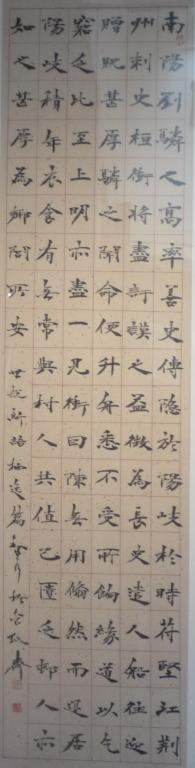 南陽劉驎之高率善史傳隱於陽岐於時苻堅江荆
州刺史桓衝將盡訏謨之益徵為長史遣人船往迎
贈貺甚厚驎之聞命便升舟悉不受所餉緣道以乞
窮乏比至上明亦盡一見衝因陳無用翛然而退居
陽岐積年衣食有無常與村人共值己匱乏邨人亦
如之甚厚為鄉閭所安 世說新語栖逸篇